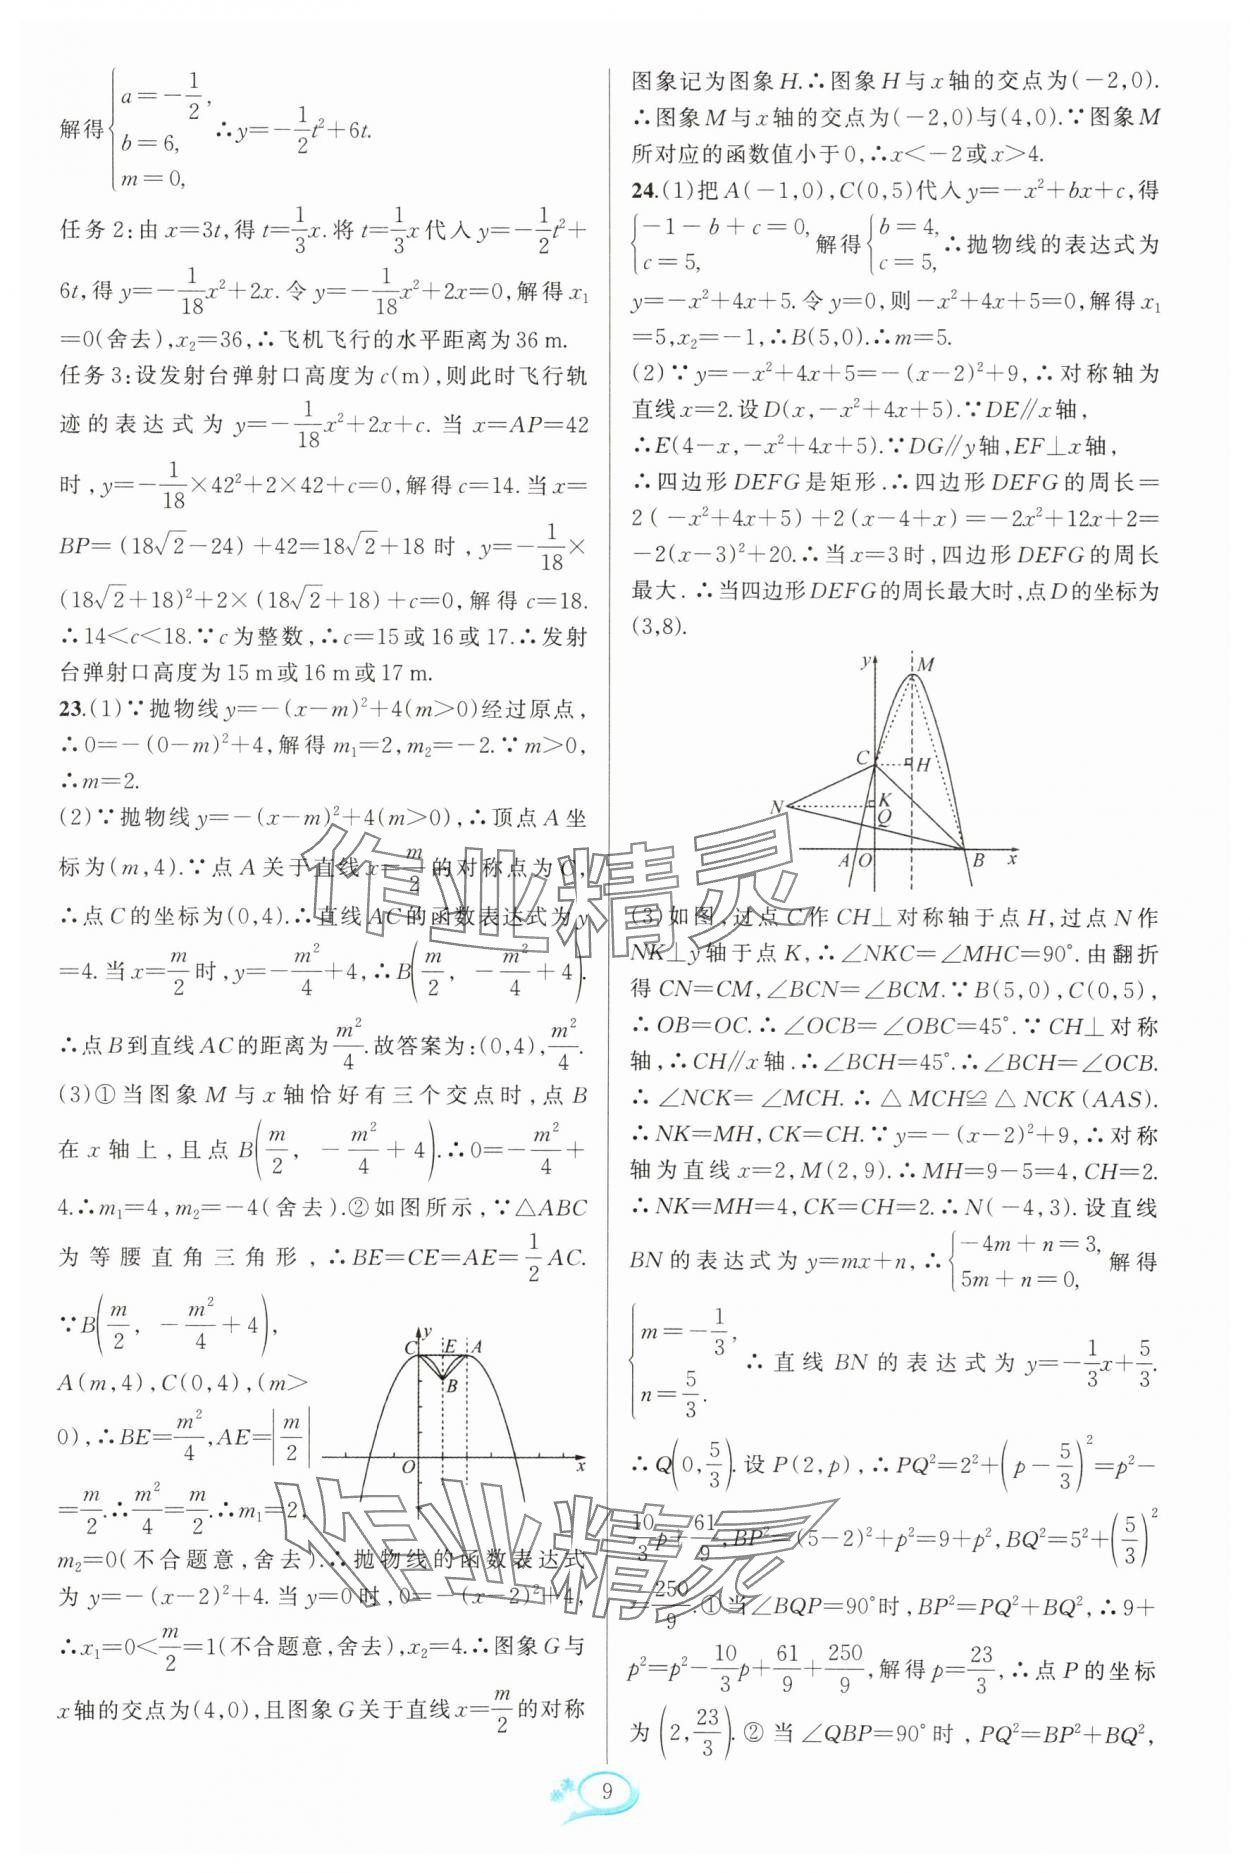 解得{a=-1/2, b=6, m=0, ∴y=-1/2t²+6t.
任务2:由x=3t,得t=1/3x.将t=1/3x代入y=-1/2t²+
6t,得y=-1/18x²+2x.令y=-1/18x²+2x=0,解得x₁
=0(舍去),x₂=36,∴飞机飞行的水平距离为36 m.
任务3:设发射台弹射口高度为c(m),则此时飞行轨
迹的表达式为y=-1/18x²+2x+c.当x=AP=42
时,y=-1/18×42²+2×42+c=0,解得c=14.当x=
BP=(18√2-24)+42=18√2+18时,y=-1/18×
(18√2+18)²+2×(18√2+18)+c=0,解得c=18.
∴14<c<18.∵c为整数,∴c=15或16或17.∴发射
台弹射口高度为15 m或16 m或17 m.
23.(1)∵抛物线y=-(x-m)²+4(m>0)经过原点,
∴0=-(0-m)²+4,解得m₁=2,m₂=-2.∵m>0,
∴m=2.
(2)∵抛物线y=-(x-m)²+4(m>0),∴顶点A坐
标为(m,4).∵点A关于直线x=m/2的对称点为C,
∴点C的坐标为(0,4).∴直线AC的函数表达式为y
=4.当x=m/2时,y=-m²/4+4,∴B(m/2, -m²/4+4).
∴点B到直线AC的距离为m²/4.故答案为:(0,4),m²/4.
(3)①当图象M与x轴恰好有三个交点时,点B
在x轴上,且点B(m/2, -m²/4+4).∴0=-m²/4+
4.∴m₁=4,m₂=-4(舍去).②如图所示,∵△ABC
为等腰直角三角形,∴BE=CE=AE=1/2AC.
∵B(m/2, -m²/4+4),
A(m,4),C(0,4),(m>
0),∴BE=m²/4,AE=|m/2|
=m/2.∴m²/4=m/2.∴m₁=2,
y
C E A
B
O x
m₂=0(不合题意,舍去).∴抛物线的函数表达式
为y=-(x-2)²+4.当y=0时,0=-(x-2)²+4,
∴x₁=0<m/2=1(不合题意,舍去),x₂=4.∴图象G与
x轴的交点为(4,0),且图象G关于直线x=m/2的对称
图象记为图象H.∴图象H与x轴的交点为(-2,0).
∴图象M与x轴的交点为(-2,0)与(4,0).∵图象M
所对应的函数值小于0,∴x<-2或x>4.
24.(1)把A(-1,0),C(0,5)代入y=-x²+bx+c,得
{-1-b+c=0, c=5, 解得{b=4, c=5, ∴抛物线的表达式为
y=-x²+4x+5.令y=0,则-x²+4x+5=0,解得x₁
=5,x₂=-1,∴B(5,0).∴m=5.
(2)∵y=-x²+4x+5=-(x-2)²+9,∴对称轴为
直线x=2.设D(x,-x²+4x+5).∵DE∥x轴,
∴E(4-x,-x²+4x+5).∵DG∥y轴,EF⊥x轴,
∴四边形DEFG是矩形.∴四边形DEFG的周长=
2(-x²+4x+5)+2(x-4+x)=-2x²+12x+2=
-2(x-3)²+20.∴当x=3时,四边形DEFG的周长
最大.∴当四边形DEFG的周长最大时,点D的坐标为
(3,8).
y M
C H
N K
Q
A O B x
(3)如图,过点C作CH⊥对称轴于点H,过点N作
NK⊥y轴于点K,∴∠NKC=∠MHC=90°.由翻折
得CN=CM,∠BCN=∠BCM.∵B(5,0),C(0,5),
∴OB=OC.∴∠OCB=∠OBC=45°.∵CH⊥对称
轴,∴CH∥x轴.∴∠BCH=45°.∴∠BCH=∠OCB.
∴∠NCK=∠MCH.∴△MCH≌△NCK(AAS).
∴NK=MH,CK=CH.∵y=-(x-2)²+9,∴对称
轴为直线x=2,M(2,9).∴MH=9-5=4,CH=2.
∴NK=MH=4,CK=CH=2.∴N(-4,3).设直线
BN的表达式为y=mx+n,∴{-4m+n=3, 5m+n=0, 解得
{m=-1/3, n=5/3. ∴直线BN的表达式为y=-1/3x+5/3.
∴Q(0,5/3).设P(2,p),∴PQ²=2²+(p-5/3)²=p²-
10/3p+61/9,BP²=(5-2)²+p²=9+p²,BQ²=5²+(5/3)²
=250/9.①当∠BQP=90°时,BP²=PQ²+BQ²,∴9+
p²=p²-10/3p+61/9+250/9,解得p=23/3,∴点P的坐标
为(2,23/3).②当∠QBP=90°时,PQ²=BP²+BQ²,
9
作业精灵
作业精灵